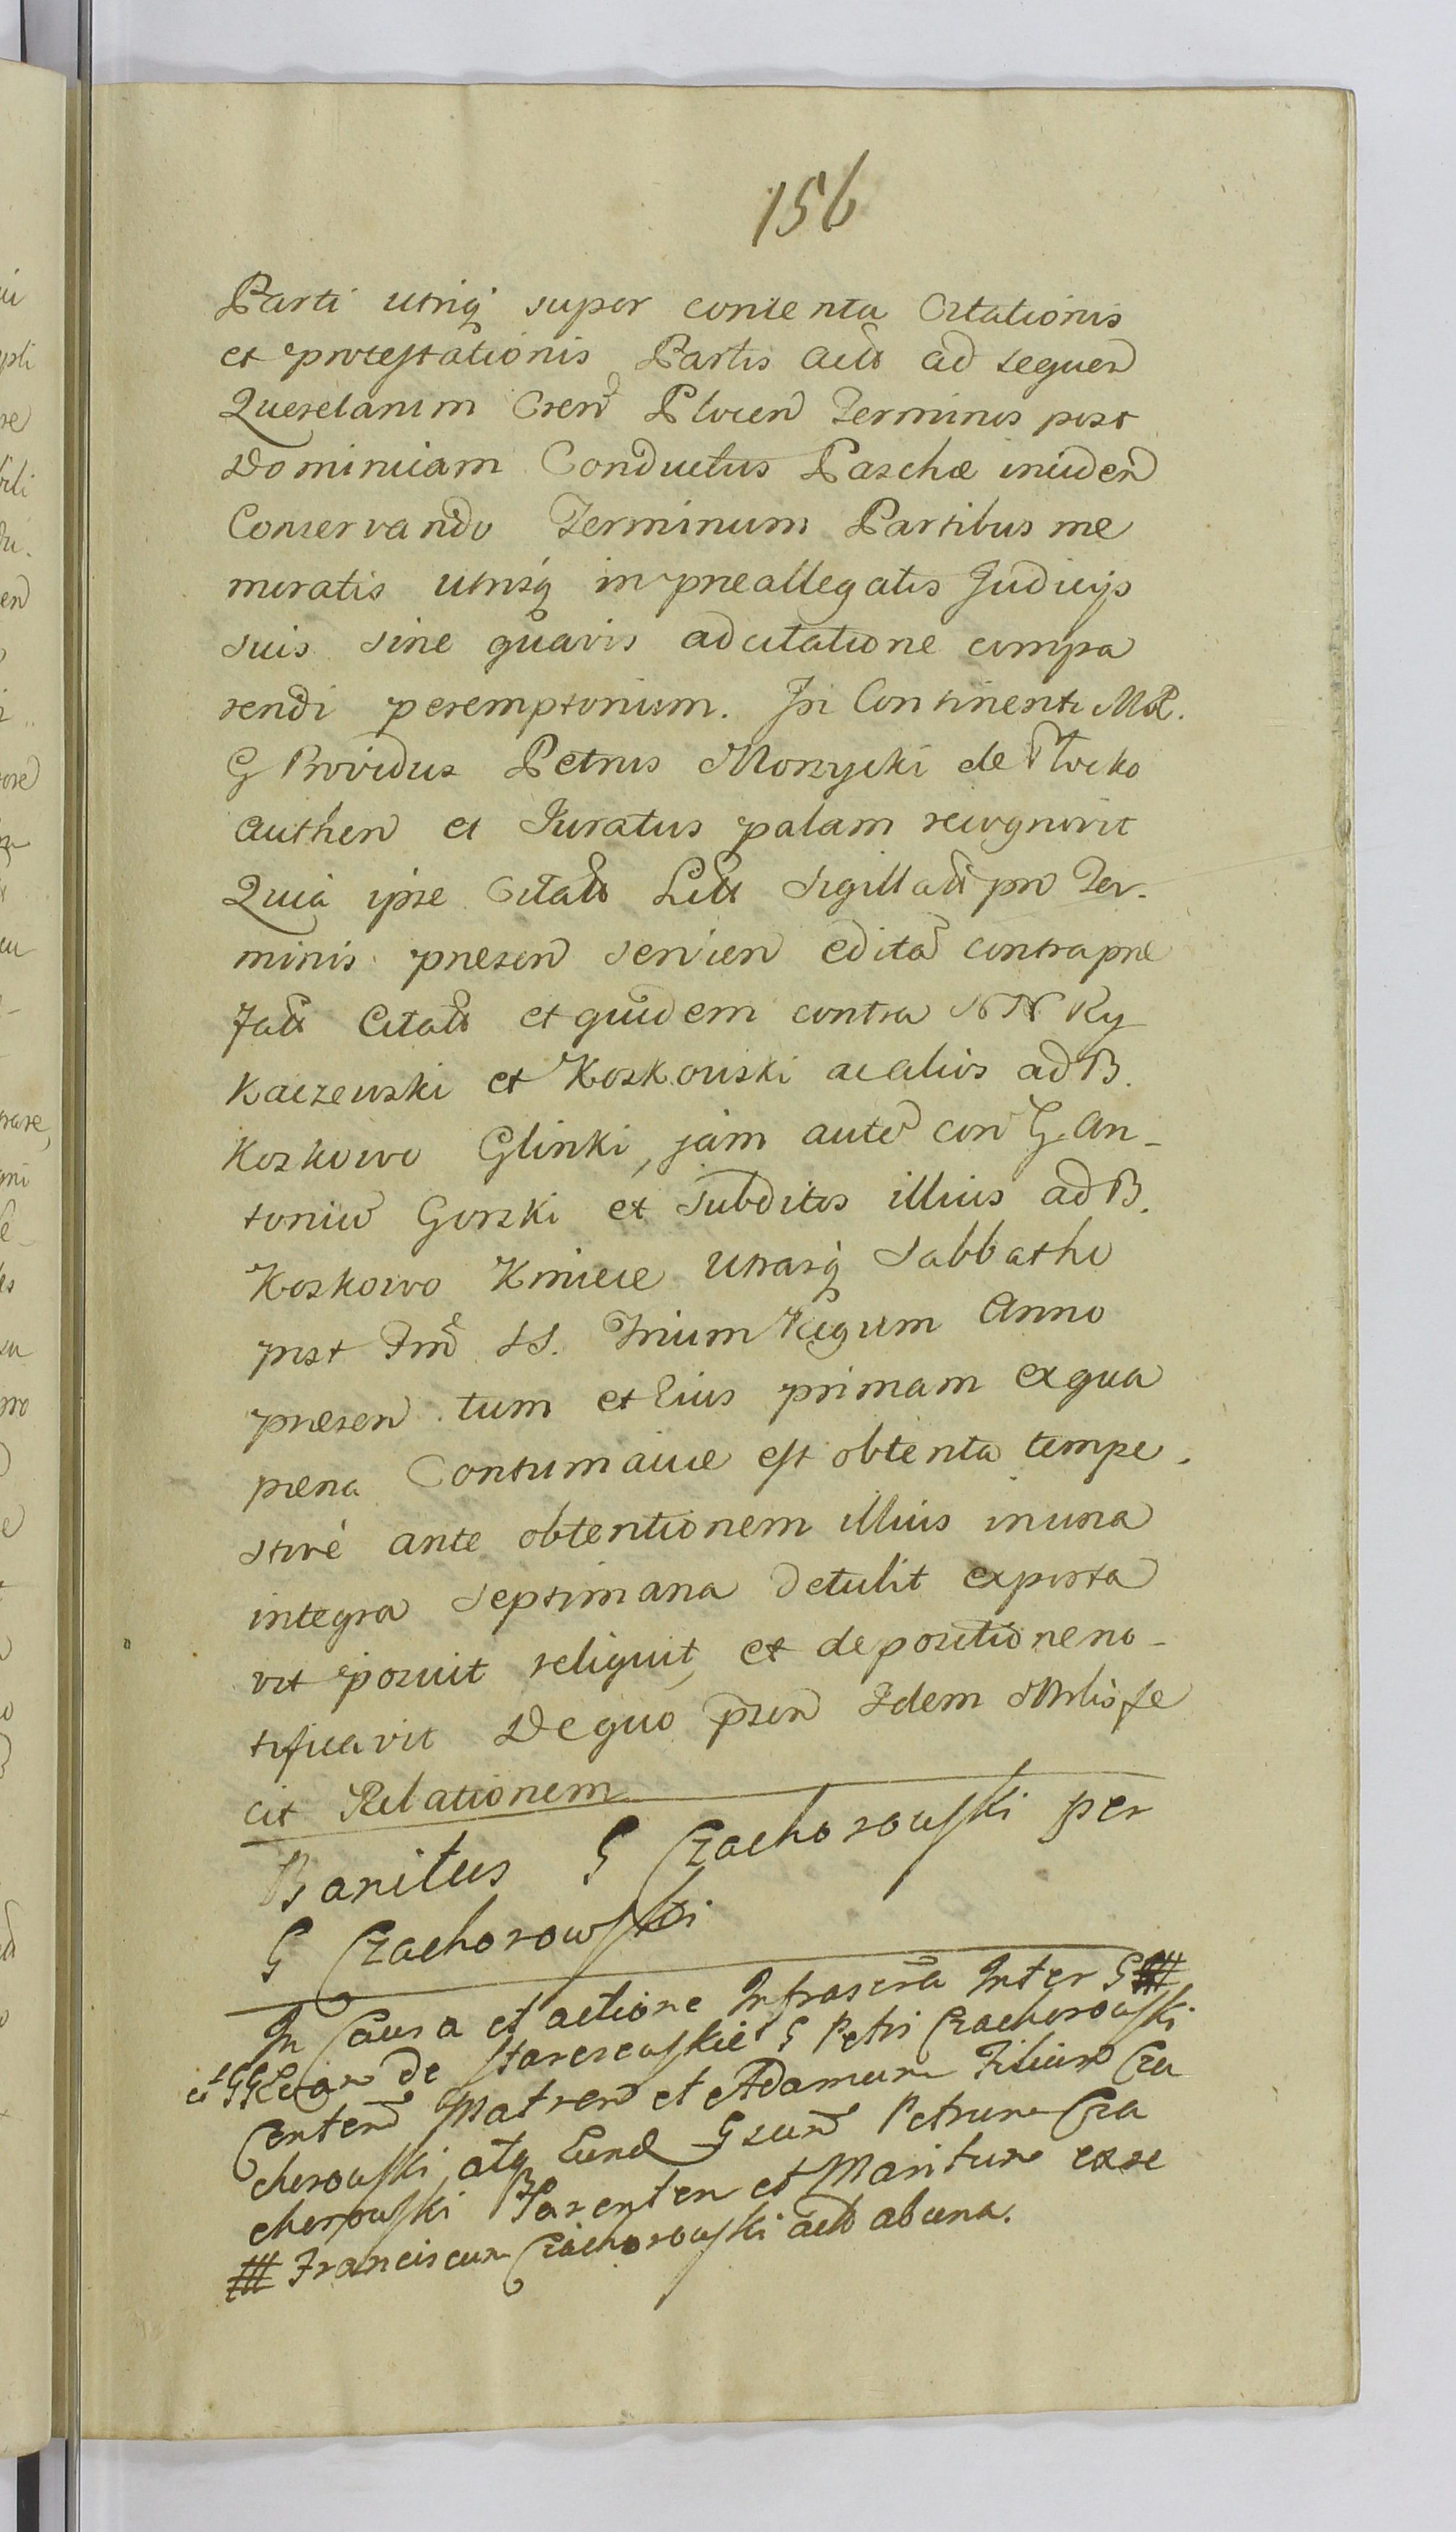 156
Parti utriq super contenta Citationis
et protestationis Partis act ad sequen
Querelarum Cren Plocen Terminos post
Dominicam Conductus Paschæ inciden
Conservando Terminum Partibus me
moratis utrisq in præallegatis Judicijs
suis sine quavis adcitatione compa
rendi peremptorium. In Continenti M R.
G Providus Petrus Morzycki de Płocko
authen et Juratus palam recognovit
Quia ipse Citatt Litt Sigillatt pro Ter-
minis præsen servien edita contra præ
fatt Citatt et quidem contra N N Ky
kaczewski et Koskowski ac alios ad B.
Koskowo Glinki, jam aute con G. An-
toniu Gorski et Subditos illius ad B.
Koskowo Kmiece utrasq Sabbatho
post Fm SS. Trium Regum Anno
præsen tum et Eius primam ex qua
pæna Contumaciæ est obtenta tempe.
stivè ante obtentionem illius in una
integra Septimana detulit exposta
vit posuit reliquit, et de positione no-
tificavit De quo præn Idem Mrlis fe
cit Relationem
Banitus G Czachorowski per
G Czachorowski
In Causa et actione Infrascra Inter G #
et GG de G Petri Czachorowski
Matren et Adamum Filium Cza
chorowski, atq Eund Gsum Petrum Cza
chorowski Parentem et Maritum ex re
# Franciscum Czachorowski act ab una.